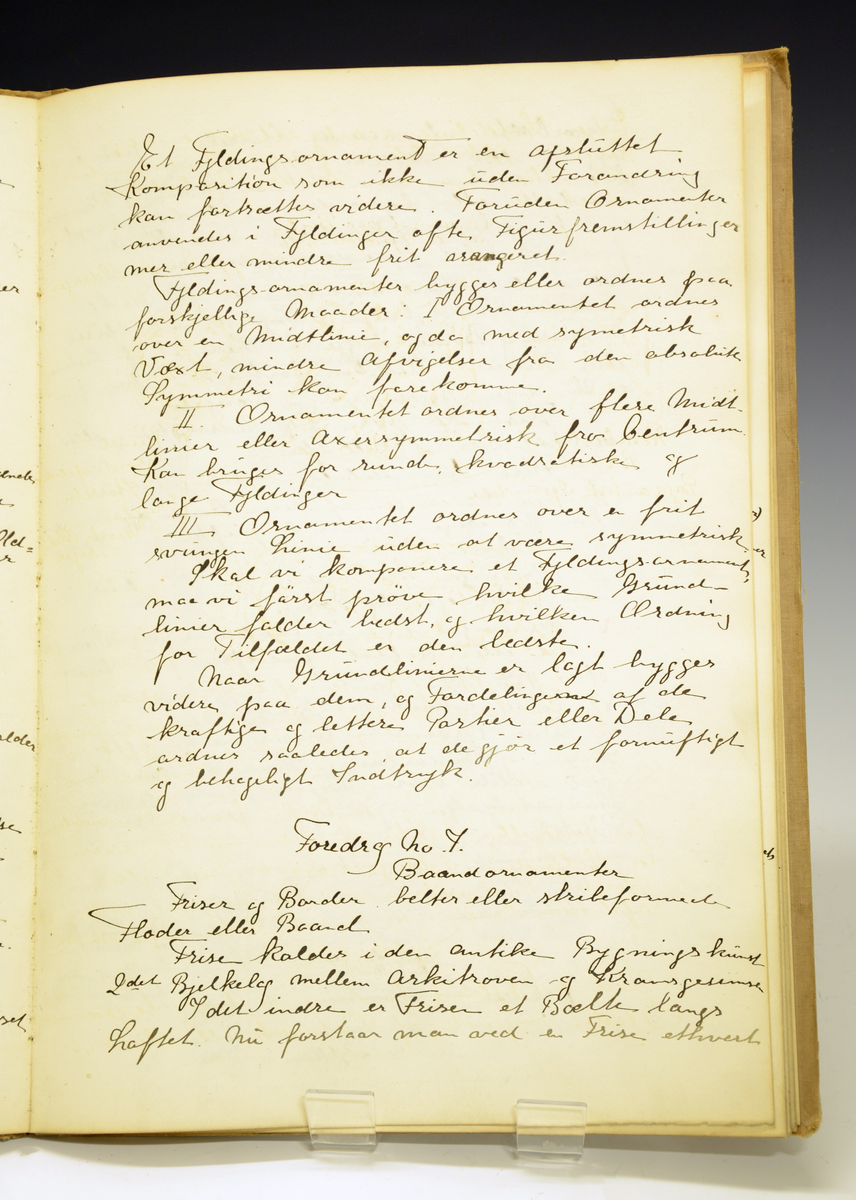 Et Fyldingsornament er en afsluttet
Komposition som ikke uden Forandring
kan fortsættes videre. Foruden Ornamenter
anvendes i Fyldinger ofte Figurfremstillinger
mer eller mindre frit arangeret.
Fyldingsornamenter bygges eller ordnes paa
forskjellige Maader: I Ornamentet ordnes
over en Midtlinie, og da med symetrisk
Væxt, mindre Afvigelser fra den absolute
Symmetri kan forekomme.
II. Ornamentet ordnes over flere Midt-
linier eller Axersymmetrisk fra Centrum.
Kan bruges for runde, kvadratiske og
lange Fyldinger
III Ornamentet ordnes over en frit
svungen Linie uden at være symmetrisk.
Skal vi komponere et Fyldingsornament,
maa vi först pröve hvilke Grund-
linier falder bedst, og hvilken Ordning
for Tilfældet er den bedste.
Naar Grundlinierne er lagt bygges
videre paa dem, og Fordelingen af de
kraftige og lettere Partier eller Dele
ordnes saaledes at de gjör et fornuftigt
og behageligt Indtryk.
Foredrag No 7.
Baandornamenter
Friser og Border belter eller stribeformede
Flader eller Baand
Frise kaldes i den antike Bygningskunst
2det Bjelkelag mellem Arkitraven og Kransgesimse
I det indre er Frisen et Bælte langs
Loftet. Nu forstaar man ved en Frise ethvert